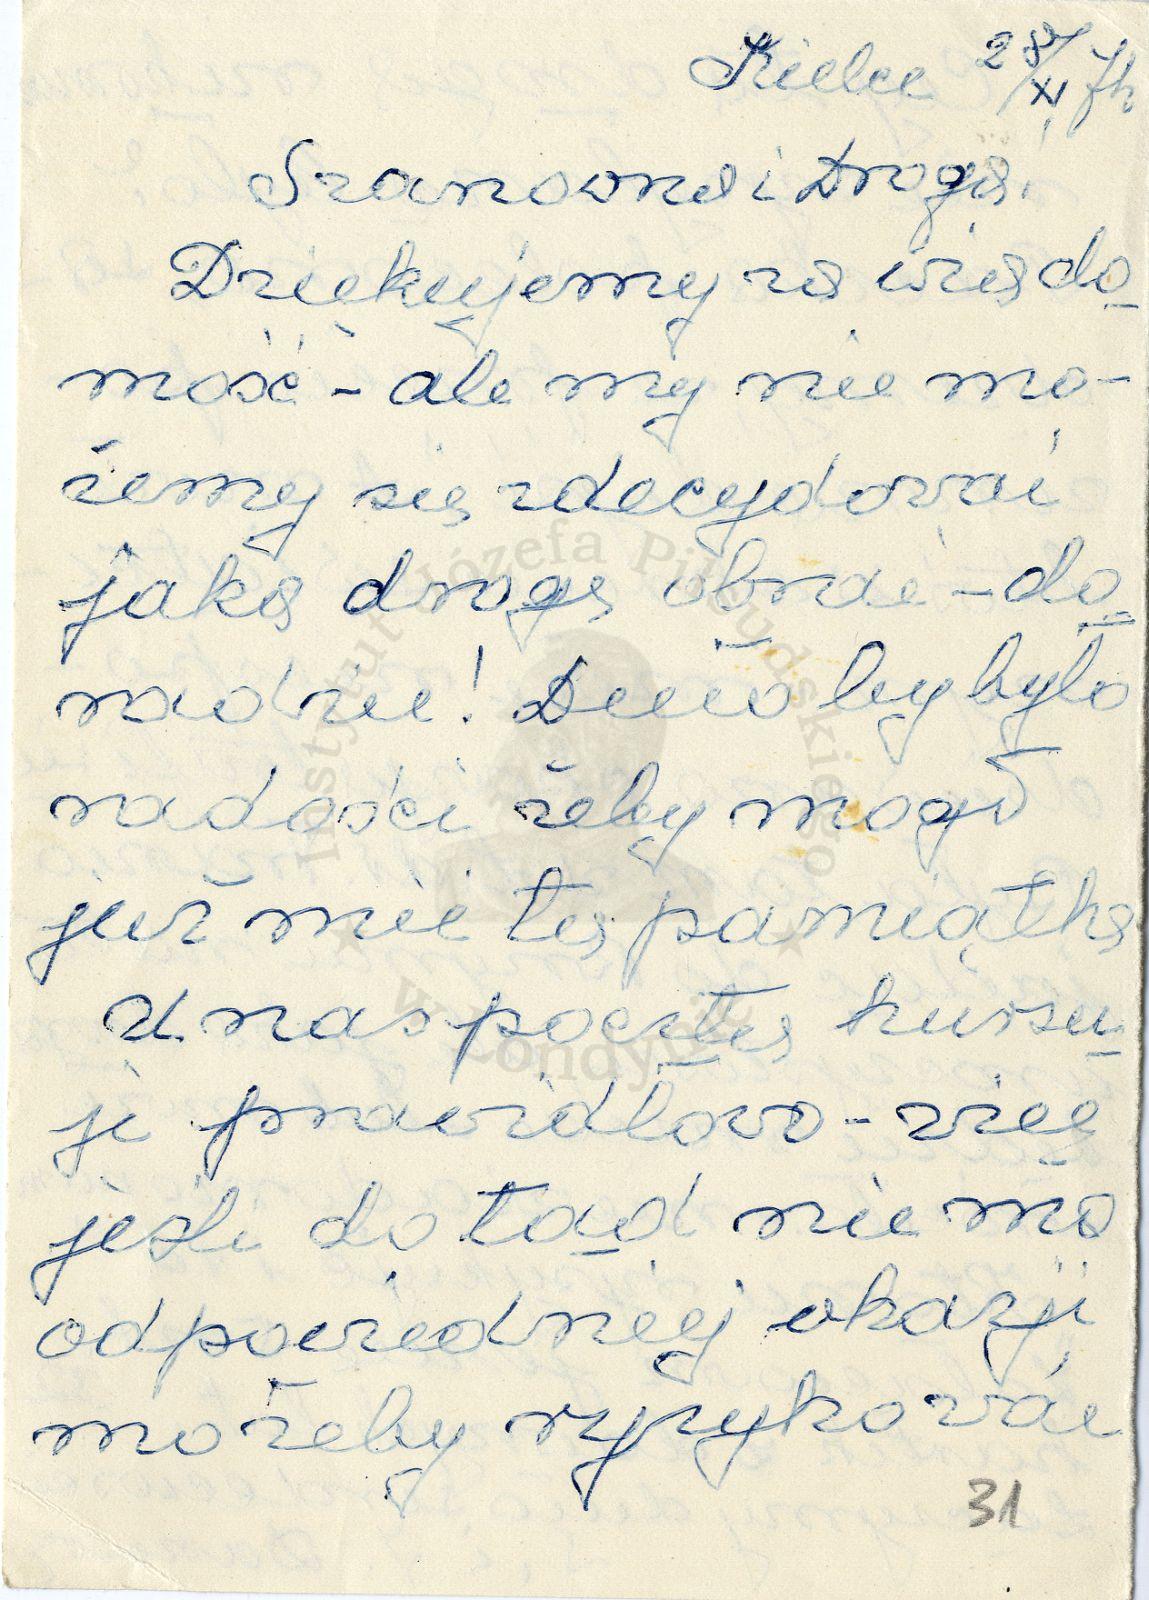 Kielce 28/XI 74
Szanowna i Droga!
Dziękujemy za wiado_
mość - ale my nie mo-
żemy się zdecydować
jaką drogę obrać - do_
radźcie! Dużo by było
radości żeby mogło
już mieć tę pamiątkę
U nas poczta kursu_
je prawidłowo - więc
jeśli dotąd nie ma
odpowiedniej okazji
może by ryzykować
31
Instytut Józefa Piłsudskiego
w Londynie